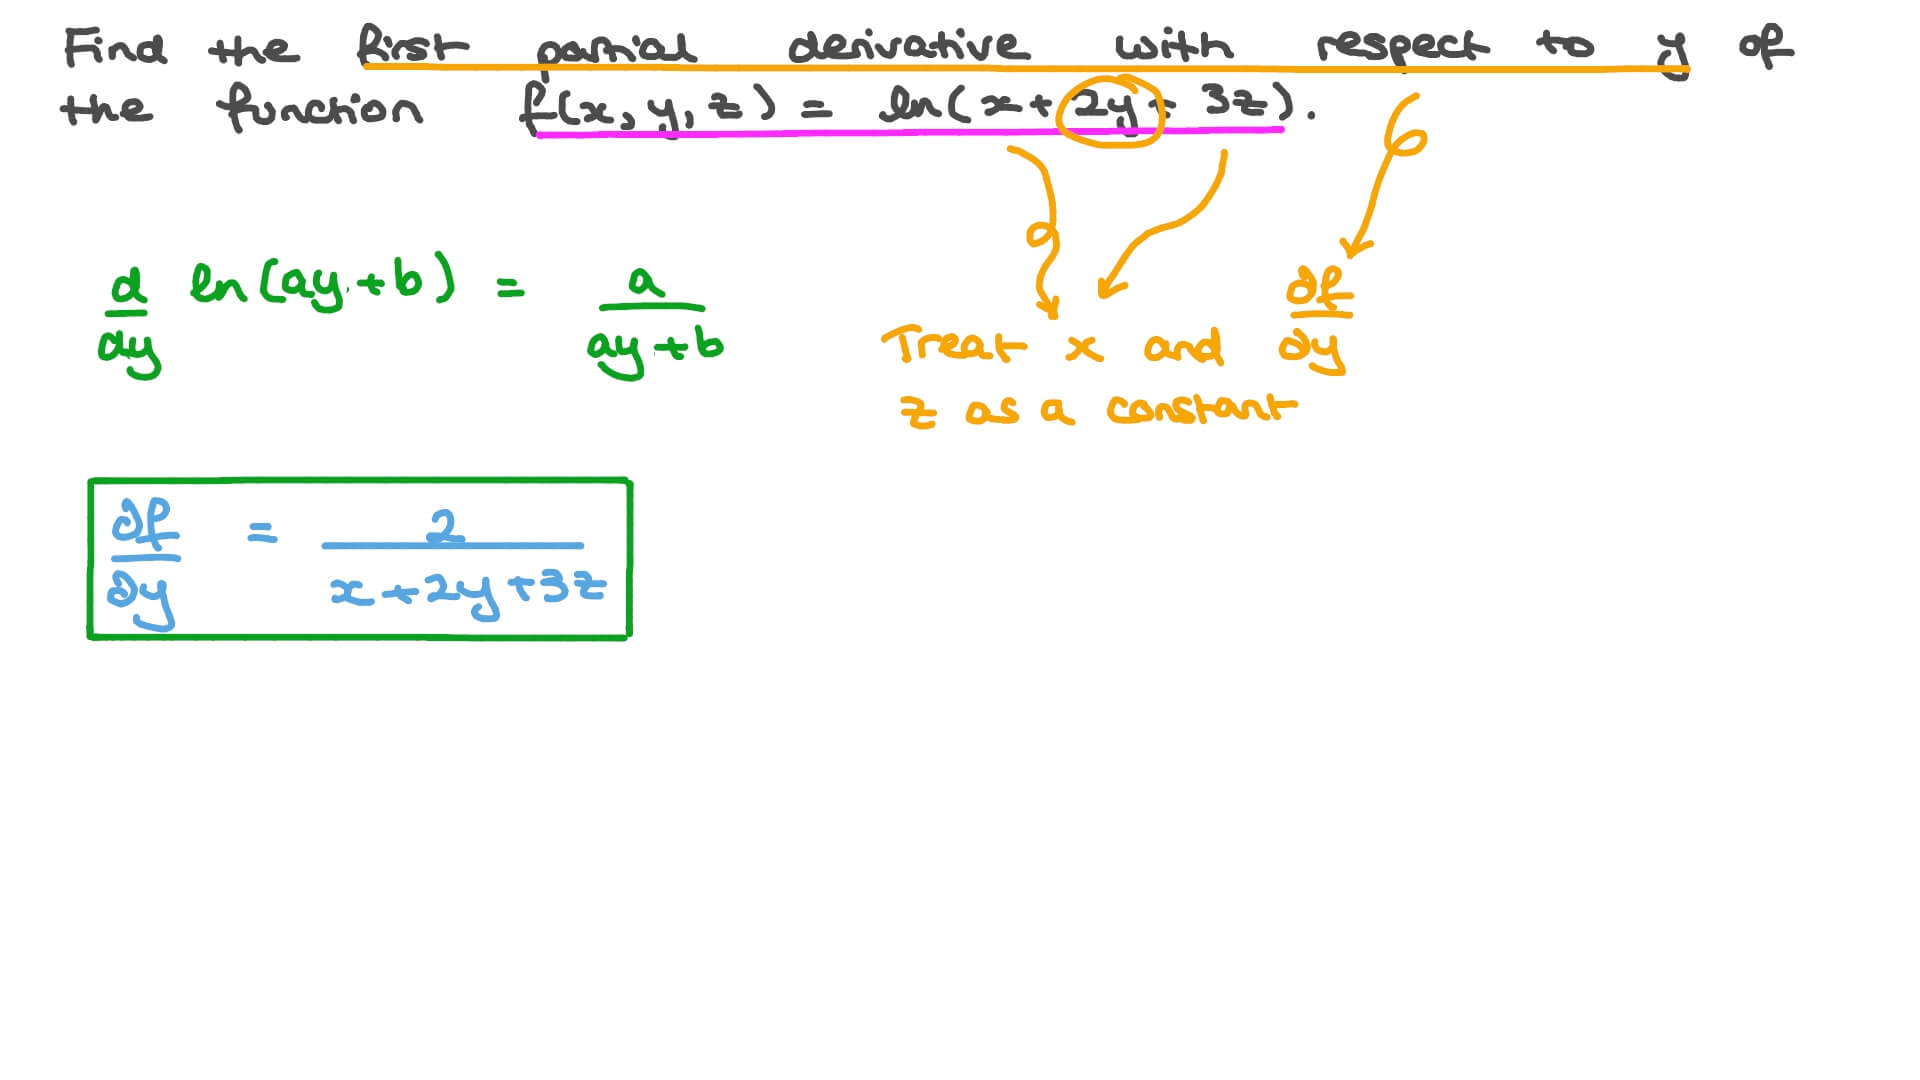 Find the first partial derivative with respect to y of
the function f(x, y, z) = ln(x + 2y + 3z).
d/dy ln(ay + b) = a/(ay + b)
∂f/∂y
Treat x and
z as a constant
∂f/∂y = 2/(x + 2y + 3z)